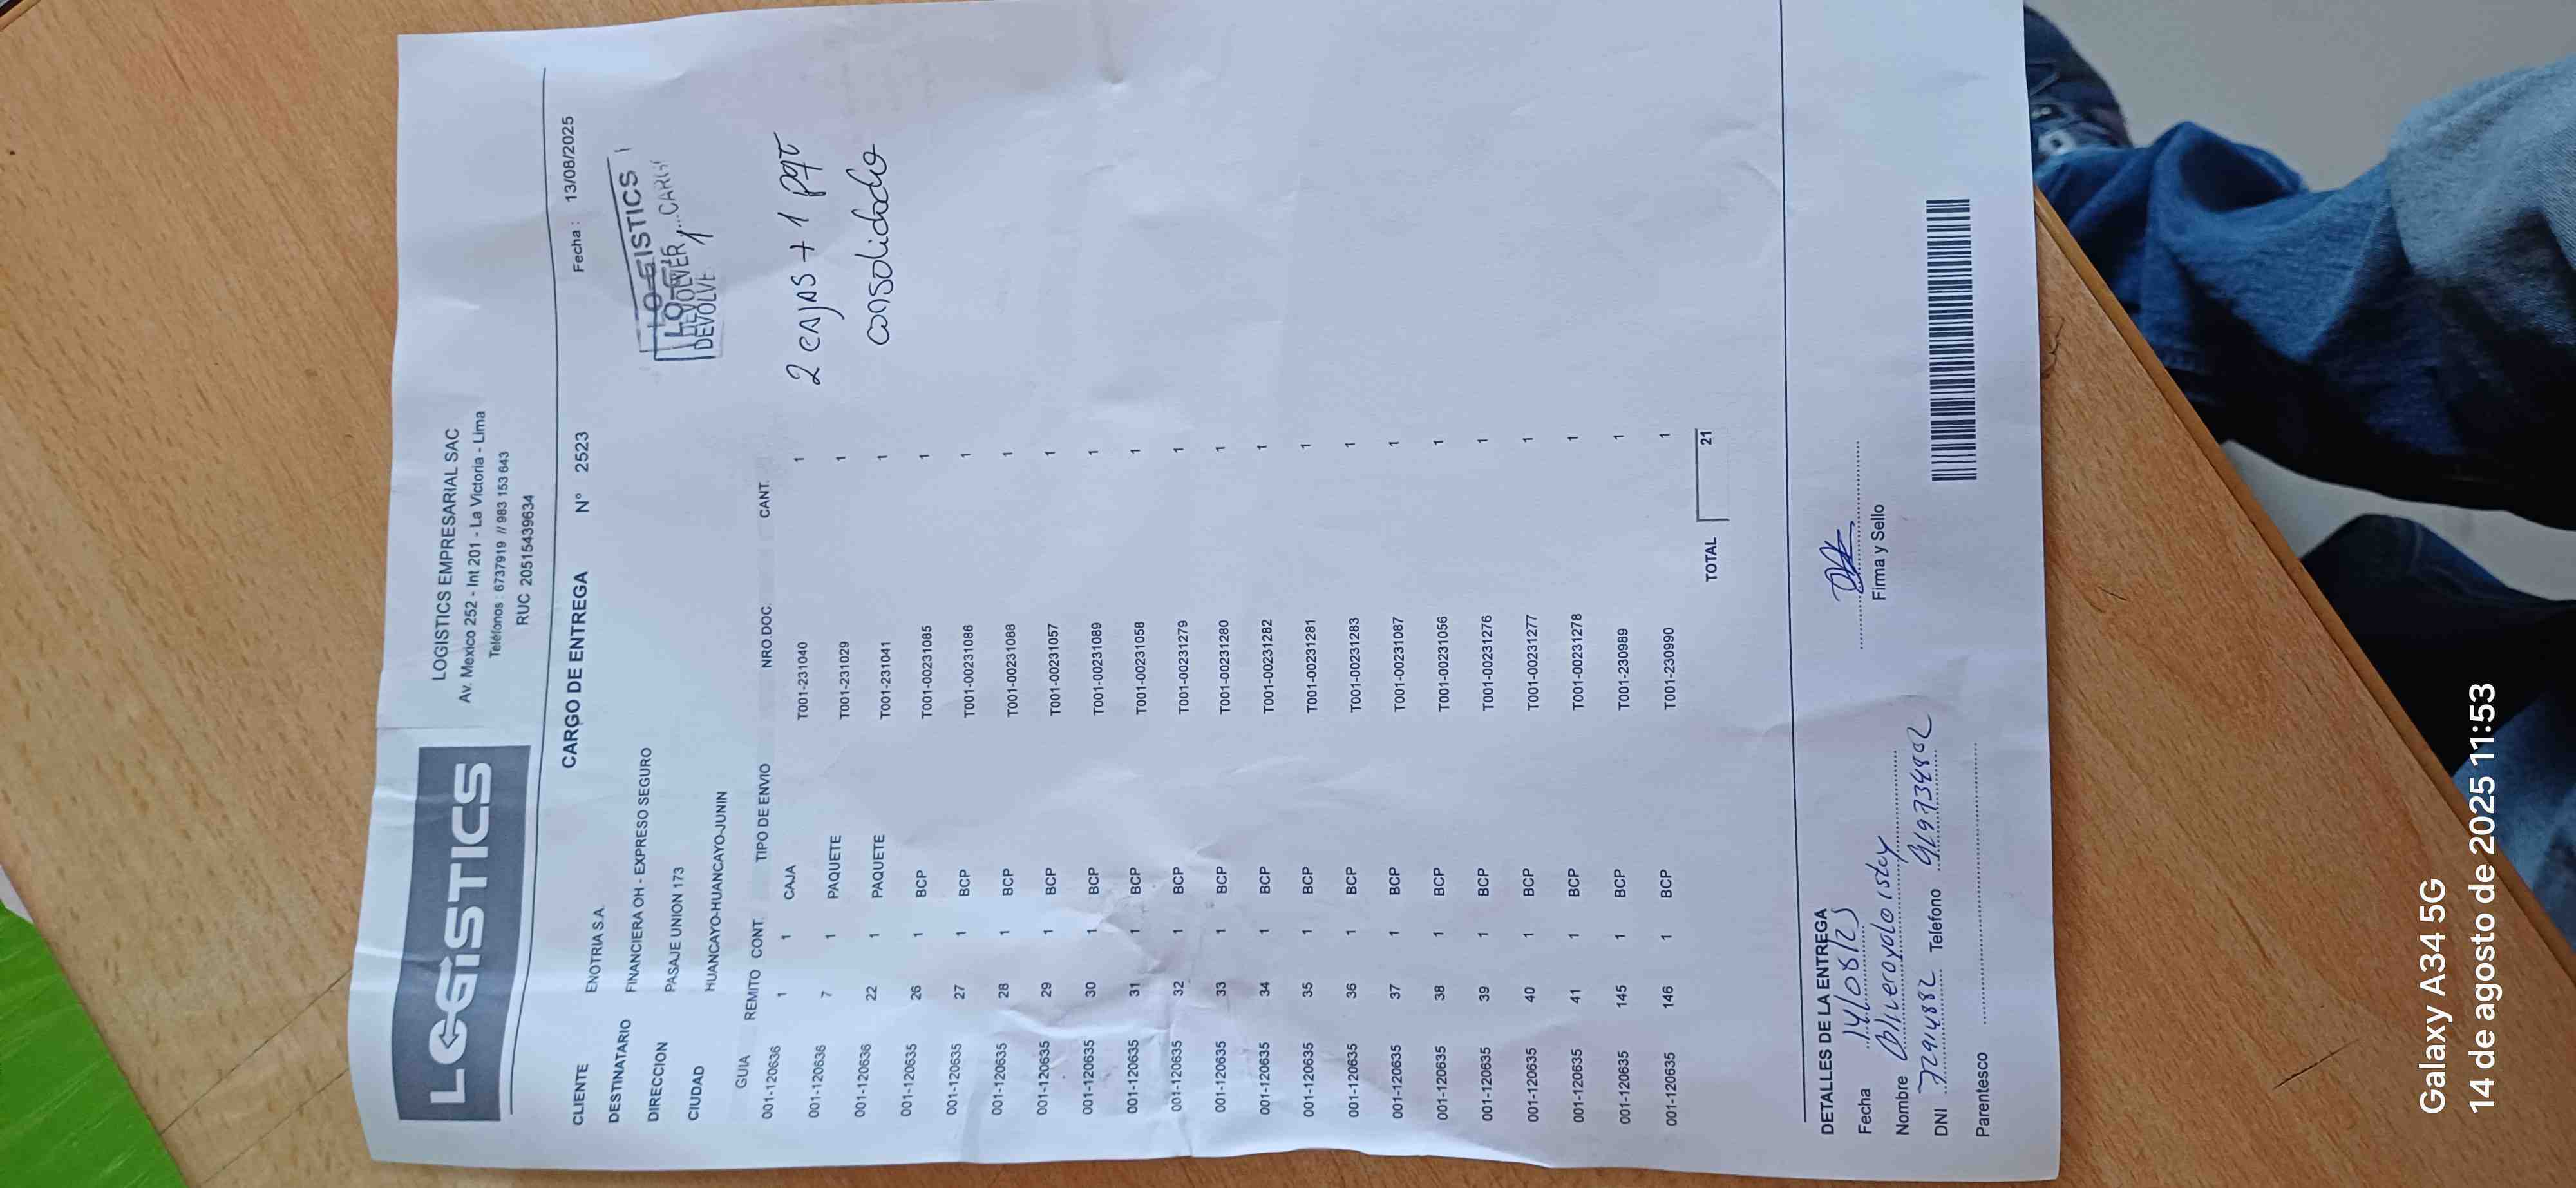 LOGISTICS
LOGISTICS EMPRESARIAL SAC
Av. Mexico 252 - Int 201 - La Victoria - Lima
Teléfonos : 6737919 // 983 153 643
RUC 20515439634
CARGO DE ENTREGA N° 2523 Fecha : 13/08/2025
CLIENTE ENOTRIA S.A.
DESTINATARIO FINANCIERA OH - EXPRESO SEGURO
DIRECCION PASAJE UNION 173
CIUDAD HUANCAYO-HUANCAYO-JUNIN
LOGISTICS
DEVOLVER CARGO
DEVOLVE
GUIA REMITO CONT. TIPO DE ENVIO NRO.DOC. CANT.
001-120636 1 1 CAJA T001-231040 1
001-120636 7 1 PAQUETE T001-231029 1
001-120636 22 1 PAQUETE T001-231041 1
001-120635 26 1 BCP T001-00231085 1
001-120635 27 1 BCP T001-00231086 1
001-120635 28 1 BCP T001-00231088 1
001-120635 29 1 BCP T001-00231057 1
001-120635 30 1 BCP T001-00231089 1
001-120635 31 1 BCP T001-00231058 1
001-120635 32 1 BCP T001-00231279 1
001-120635 33 1 BCP T001-00231280 1
001-120635 34 1 BCP T001-00231282 1
001-120635 35 1 BCP T001-00231281 1
001-120635 36 1 BCP T001-00231283 1
001-120635 37 1 BCP T001-00231087 1
001-120635 38 1 BCP T001-00231056 1
001-120635 39 1 BCP T001-00231276 1
001-120635 40 1 BCP T001-00231277 1
001-120635 41 1 BCP T001-00231278 1
001-120635 145 1 BCP T001-230989 1
001-120635 146 1 BCP T001-230990 1
2 cajas + 1 pqt
consolidado
TOTAL 21
DETALLES DE LA ENTREGA
Fecha 14/08/25
Nombre
DNI 72914882 Telefono
Parentesco
Firma y Sello
Galaxy A34 5G
14 de agosto de 2025 11:53